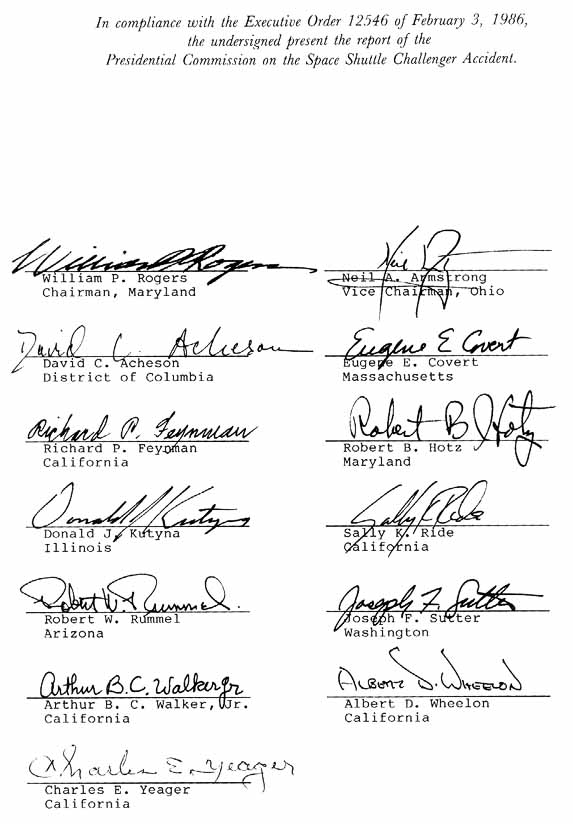 In compliance with the Executive Order 12546 of February 3, 1986,
the undersigned present the report of the
Presidential Commission on the Space Shuttle Challenger Accident.
William P. Rogers
William P. Rogers
Chairman, Maryland
Neil
Neil A. Armstrong
Vice Chairman, Ohio
David C. Acheson
David C. Acheson
District of Columbia
Eugene E Covert
Eugene E. Covert
Massachusetts
Richard P. Feynman
Richard P. Feynman
California
Robert B Hotz
Robert B. Hotz
Maryland
Donald J Kutyna
Donald J. Kutyna
Illinois
Sally K Ride
Sally K. Ride
California
Robert W. Rummel.
Robert W. Rummel
Arizona
Joseph F. Sutter
Joseph F. Sutter
Washington
Arthur B.C. Walker Jr
Arthur B. C. Walker, Jr.
California
Albert D. Wheelon
Albert D. Wheelon
California
Charles E. Yeager
Charles E. Yeager
California